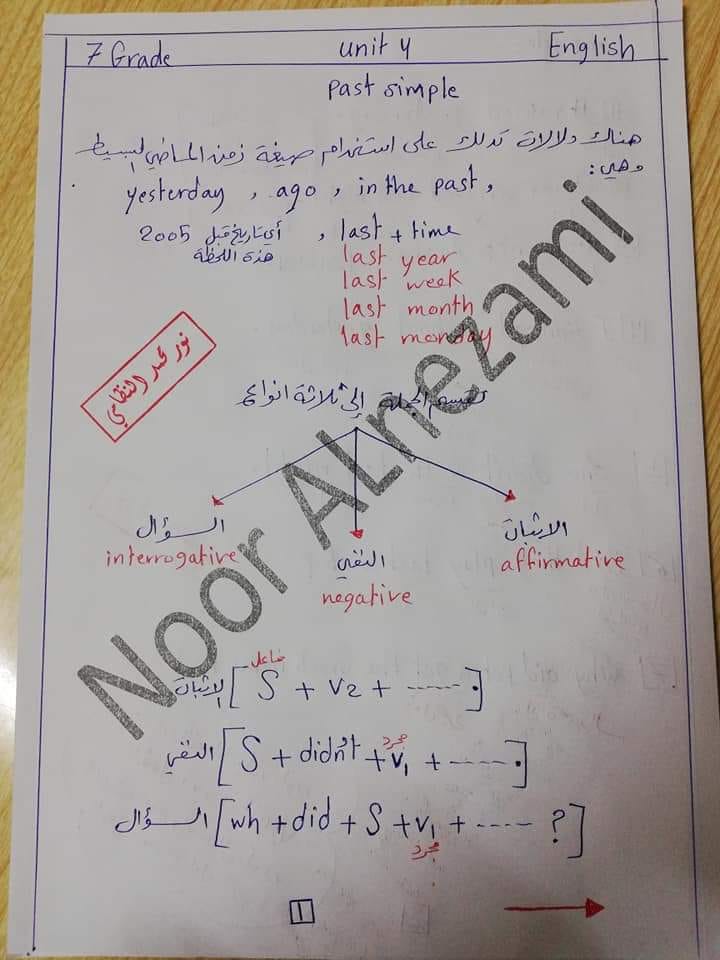 7 Grade unit 4 English
past simple
هناك دلالات تدلك على استخدام صيغة زمن الماضي البسيط
وهي:
yesterday , ago , in the past ,
last + time , أي تاريخ قبل 2005
هذه اللحظة
last year
last week
last month
last monday
نور محمد النظامي
تقسم الجملة إلى ثلاثة انواع
السؤال
interrogative
النفي
negative
الاثبات
affirmative
فاعل
الاثبات [ S + V2 + ------. ]
مجرد
النفي [ S + didn't + V1 + ------. ]
السؤال [ wh + did + S + V1 + ---- ? ]
مجرد
1
Noor ALnezami